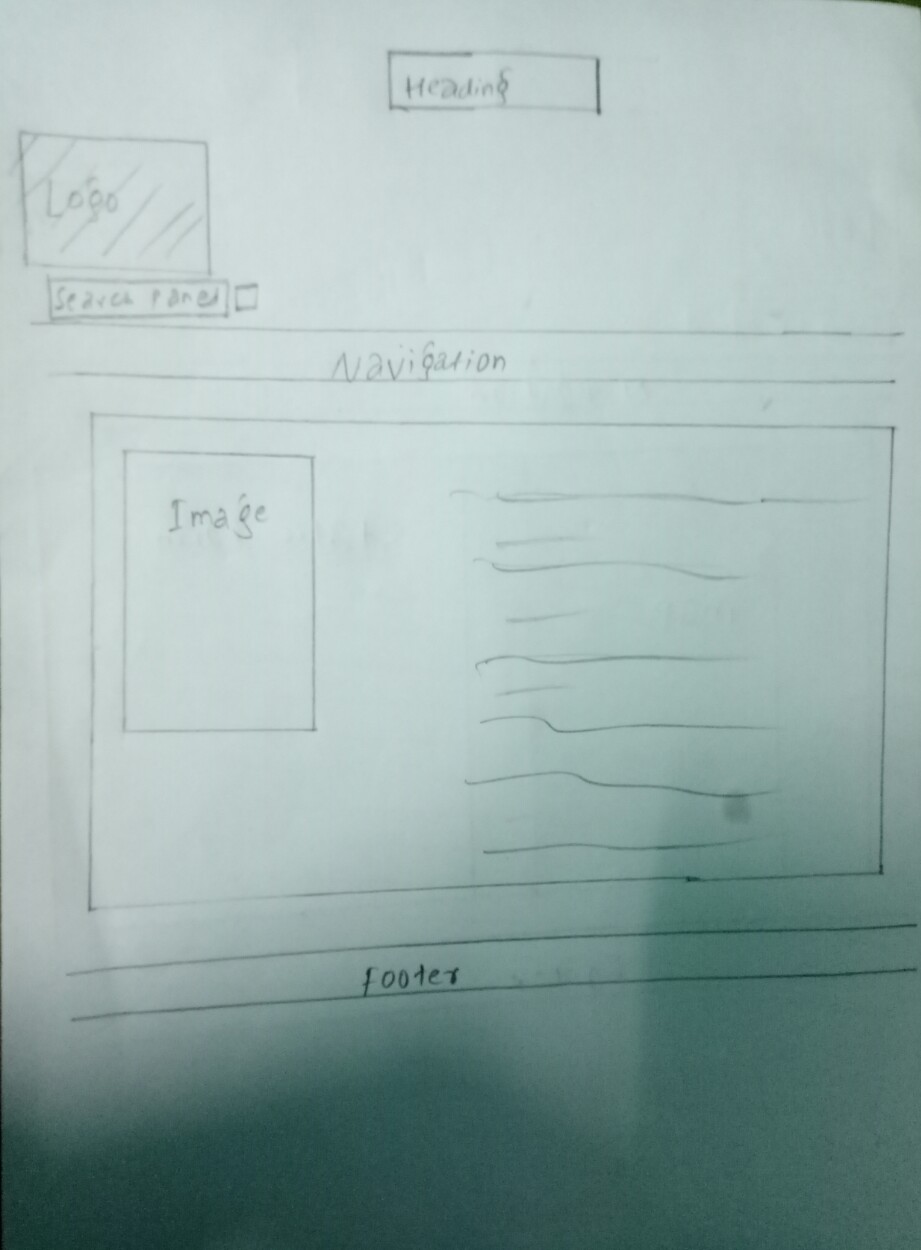 Heading
Logo
Search Panel
Navigation
Image
footer